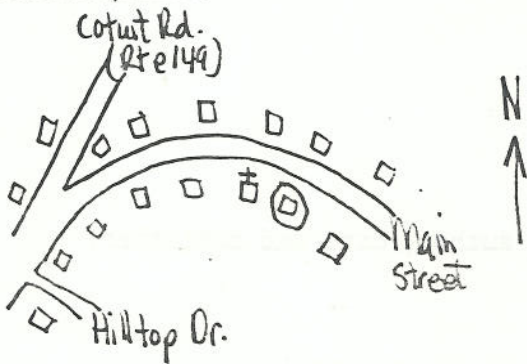 Cotuit Rd.
(Rte 149)
N
Main
Street
Hilltop Dr.